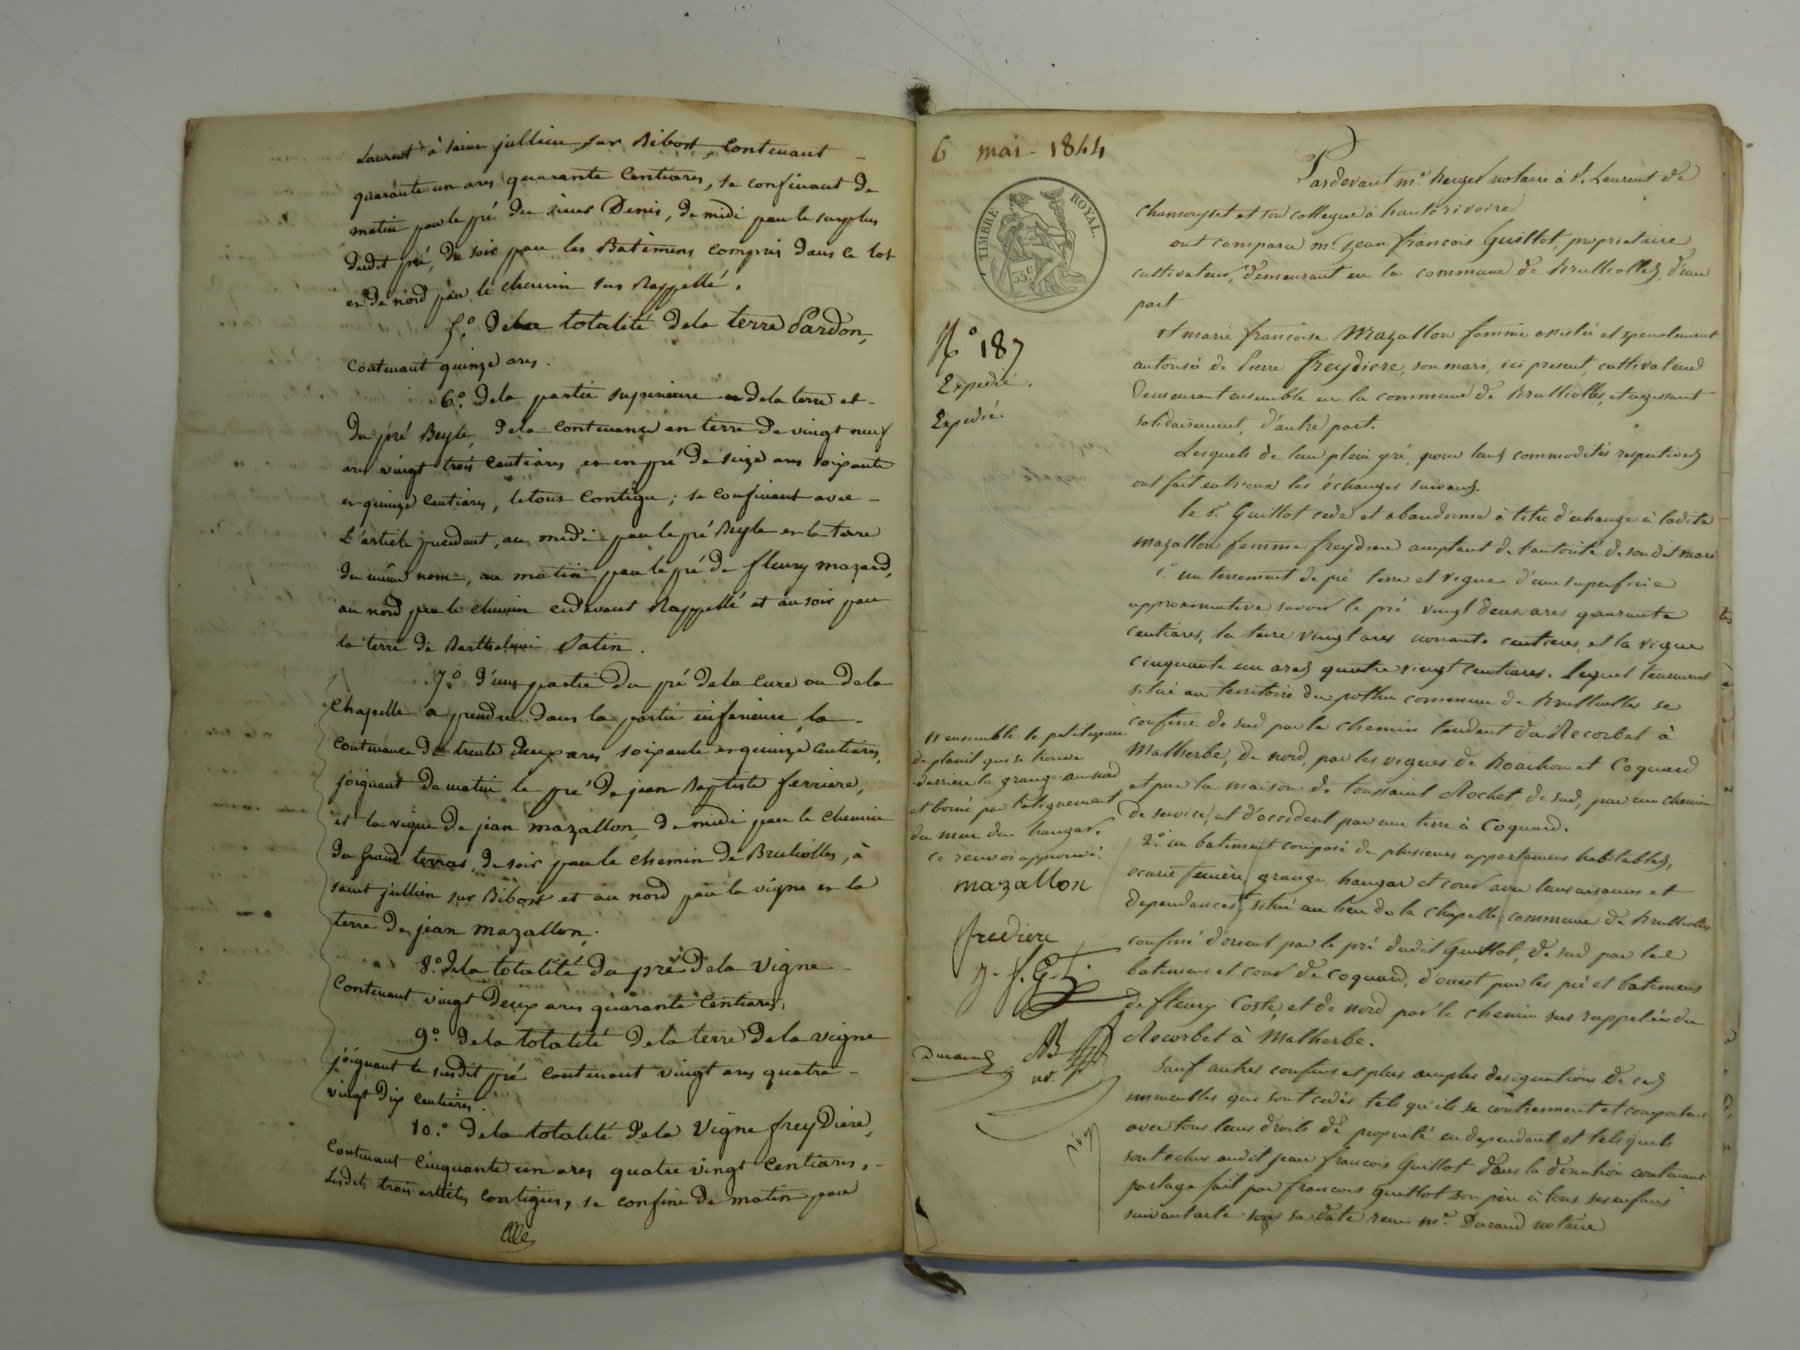 Laurent à Saint jullien sur Bibost, Contenant
quarante un ares quarante Centiares, se confinant de
matin par le pré du sieur Denis, de midi par le surplus
dudit pré, de soir par les Batimens compris dans ce lot
et de nord par le chemin sus Rappellé.
5.° De la totalité dela terre Pardon,
Contenant quinze ares.
6.° dela partie superieure dela terre et
du pré Beyle, dela Contenance en terre de vingt neuf
ares vingt trois Centiares et en pré de seize ares soixante
et quinze Centiares, le tout Contigu; se confinant avec
L'article précédent, au midi par le pré Beyle et la terre
du même nom, au matin par le pré de fleury mazard,
au nord par le chemin cidevant Rappellé et au soir par
la terre de Barthelemi Satin.
7.° d'une partie du pré dela Cure ou dela
Chapelle a prendre dans la partie inferieure, la
Contenance de trente deux ares soixante et quinze Centiares,
joignant de matin le pré de jean Baptiste ferriere,
et la vigne de jean mazallon, de midi par le chemin
du Grand terras, de soir par le chemin de Brulliolles, à
saint jullien sur Bibost et au nord par la vigne et la
terre de jean mazallon.
8.° dela totalité du pré dela Vigne
Contenant vingt deux ares quarante Centiares;
9.° dela totalité dela terre dela vigne
joignant le susdit pré Contenant vingt ares quatre
vingt dix Centiares.
10.° dela totalité dela Vigne freydiere,
Contenant Cinquante un ares quatre vingt Centiares,
Lesdits trois articles contigus, se confine de matin par
6 mai 1844
TIMBRE ROYAL.
35c
N° 187
Expedié.
Expedié.
Pardevant m.e notaire à S. Laurent de
Chamousset et son collegue à hauterivoire
ont comparu m. jean françois Guillot, propriétaire
cultivateur, demeurant en la commune de Brulliolles, d'une
part
Et marie françoise Mazallon femme assistée et spécialement
autorisée de Pierre freydiere, son mari, ici present, cultivateurs
demeurant ensemble en la commune de Brulliolles, et agissant
solidairement, d'autre part.
Lesquels de leur plein gré, pour leurs commodités respectives
ont fait entr'eux les échanges suivans.
le s.r Guillot cede et abandonne à titre d'echange à ladite
mazallon femme freydiere acceptant de l'autorité de son dit mari
1.° un tenement de pré terre et vigne d'une superficie
approximative savoir le pré vingt deux ares quarante
centiares, la terre vingt ares nonante centiares, et la vigne
cinquante un ares quatre vingt centiares. Lequel tenement
situé au territoire du commune de Brulliolles se
confine de sud par le chemin tendant du Recorbet à
Malherbe, de nord, par les vignes de et Coquard
et par la maison de toussaint Rochet de sud, par un chemin
de service, et d'occident par une terre à Coquard.
2.° un batiment composé de plusieurs appartemens habitables,
ecurie feniere, grange hangar et cour avec leurs aisances et
dependances, situé au lieu de la Chapelle, commune de Brulliolles
confiné d'orient par le pré dudit Guillot, de sud par les
batimens et cour de Coquard, d'ouest par les pré et batimens
de fleury Coste, et de nord par le chemin sus rappelé du
Recorbet à Malherbe.
Sauf autres confins et plus amples designations de ces
immeubles qui sont cédés tels qu'ils se contiennent et comportent
avec tous leurs droits de propriété en dependant et tels qu'ils
sont echus audit jean françois Guillot dans la donation contenant
partage fait par françois Guillot son père à tous ses enfans
suivant acte sous sa date reçu m.e Durand notaire
ensemble le petit espace
de plait qui se trouve
derriere la grange au nord
et borné par l'alignement
du mur du hangar.
Ce renvoi approuvé.
mazallon
frediere
j. f. G.
Durand
not.